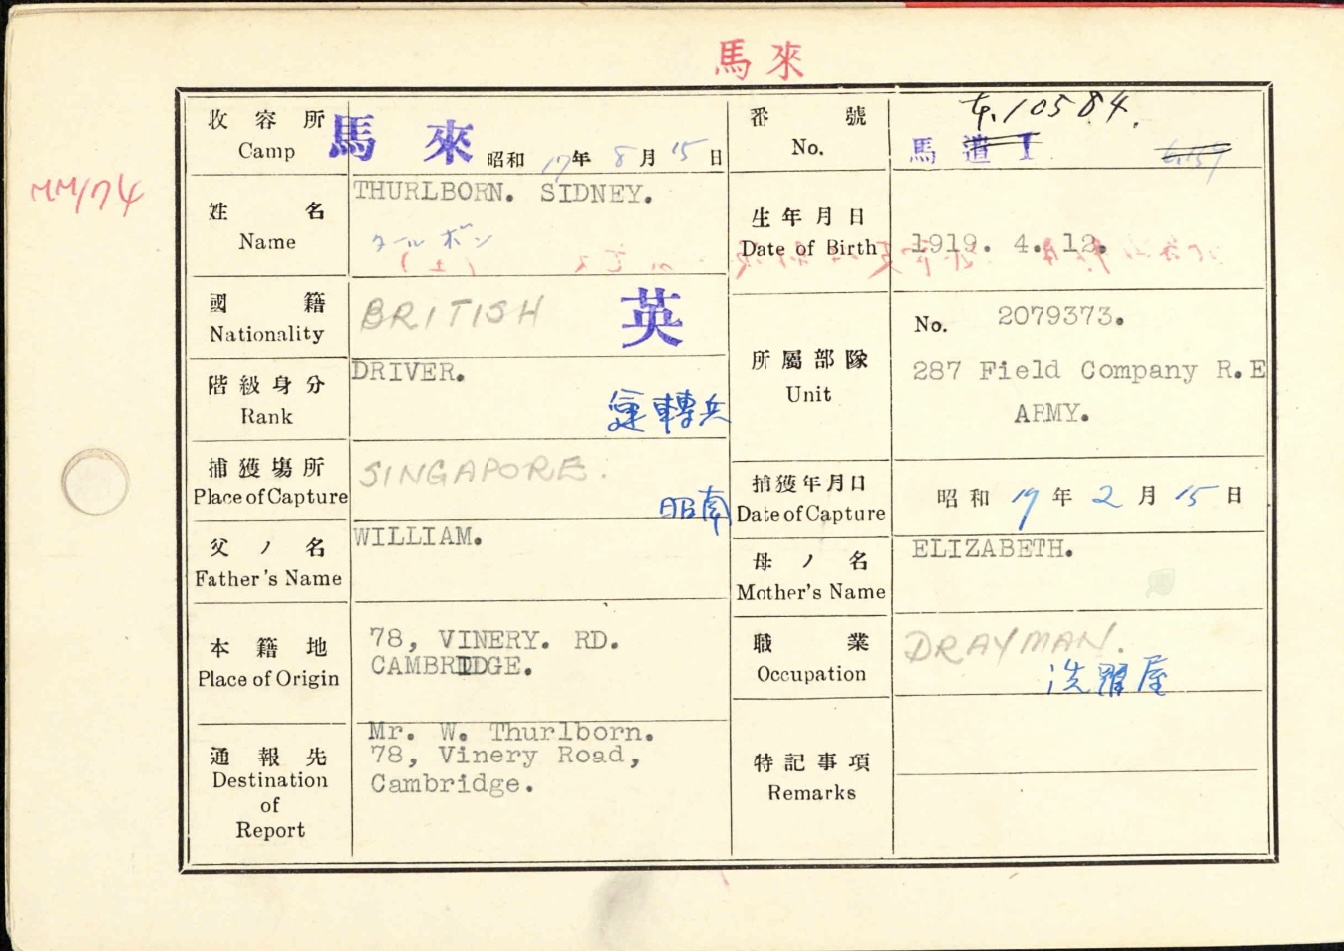 馬來
收容所
Camp
馬 來 昭和 17年 8月 15日
番號
No.
10584.
馬
MM/74
姓名
Name
THURLBORN. SIDNEY.
タールボン
生年月日
Date of Birth
1919. 4. 12.
國籍
Nationality
BRITISH 英
所屬部隊
Unit
No. 2079373.
287 Field Company R.E
ARMY.
階級身分
Rank
DRIVER.
運轉兵
捕獲場所
Place of Capture
SINGAPORE.
昭南
捕獲年月日
Date of Capture
昭和 17年 2月 15日
父ノ名
Father's Name
WILLIAM.
母ノ名
Mother's Name
ELIZABETH.
本籍地
Place of Origin
78, VINERY. RD.
CAMBRIDGE.
職業
Occupation
DRAYMAN.
洗濯屋
通報先
Destination
of
Report
Mr. W. Thurlborn.
78, Vinery Road,
Cambridge.
特記事項
Remarks